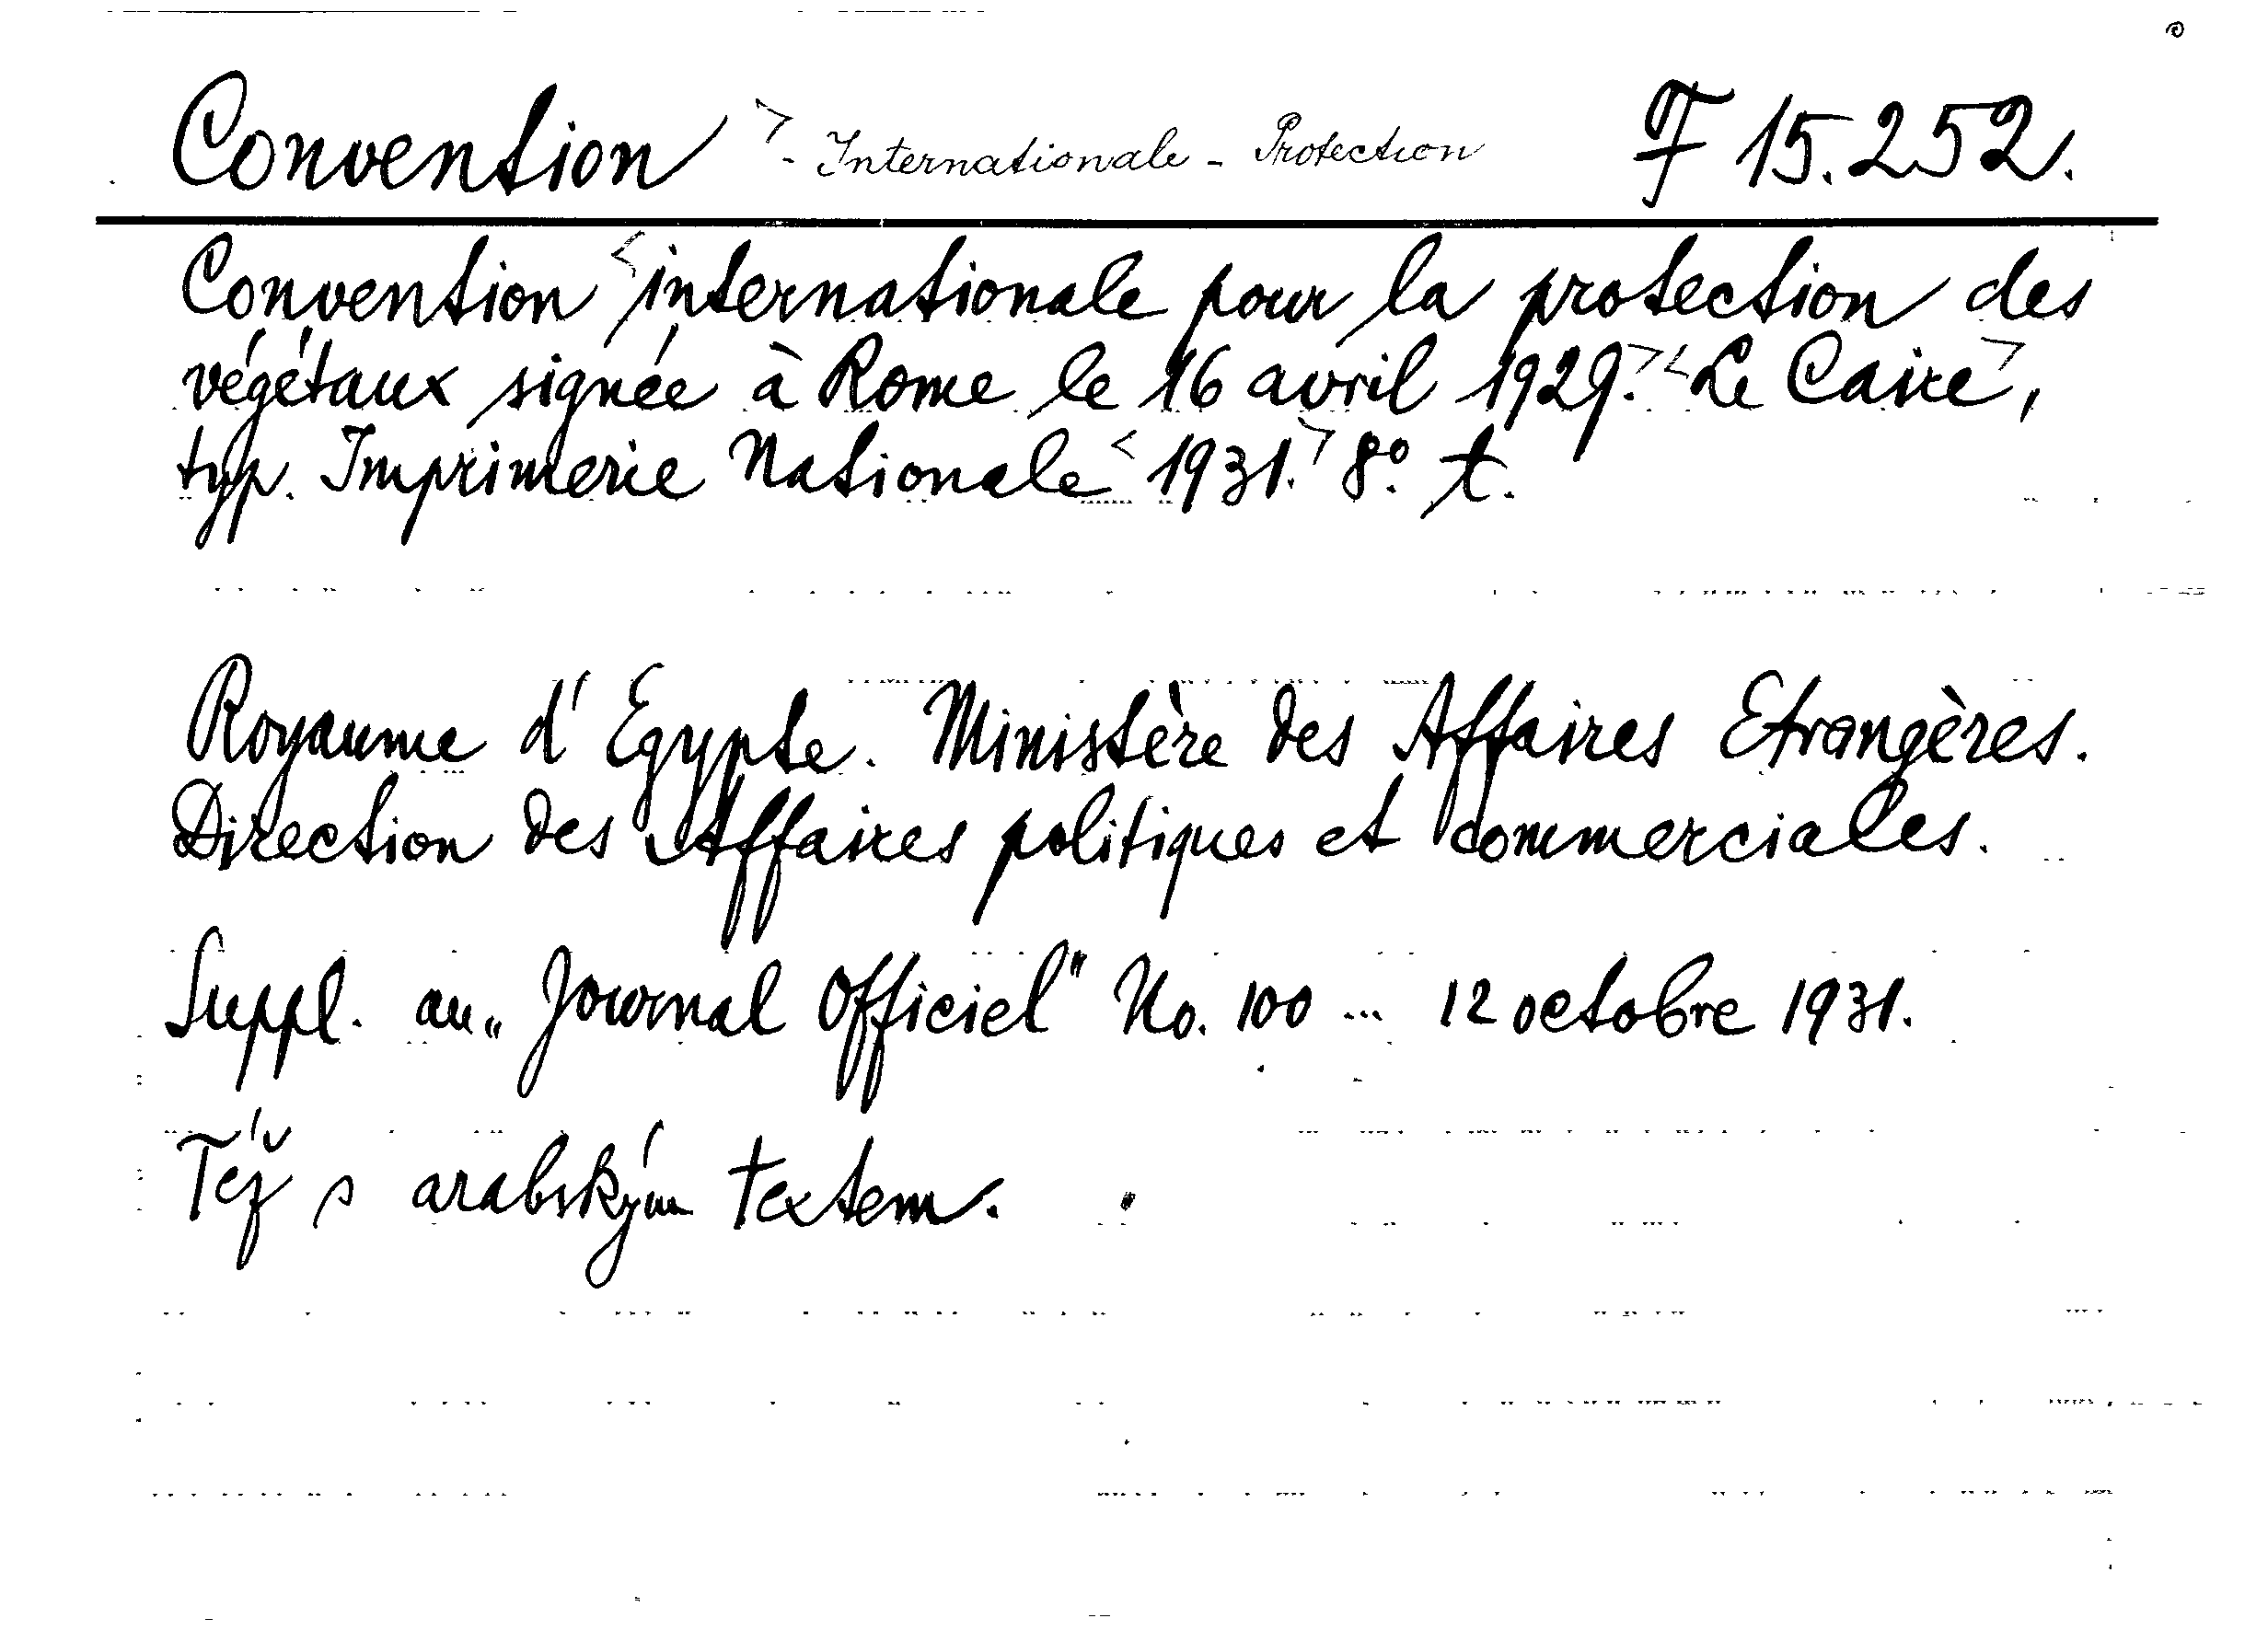 Convention - Internationale - Protection F 15.252.
Convention internationale pour la protection des
végétaux signée à Rome le 16 avril 1929. Le Caire,
typ. Imprimerie Nationale 1931. 8°. t.
Royaume d'Egypte. Ministère des Affaires Etrangères.
Direction des Affaires politiques et commerciales.
Suppl. au „Journal Officiel" No. 100 ... 12 octobre 1931.
Též s arabským textem.